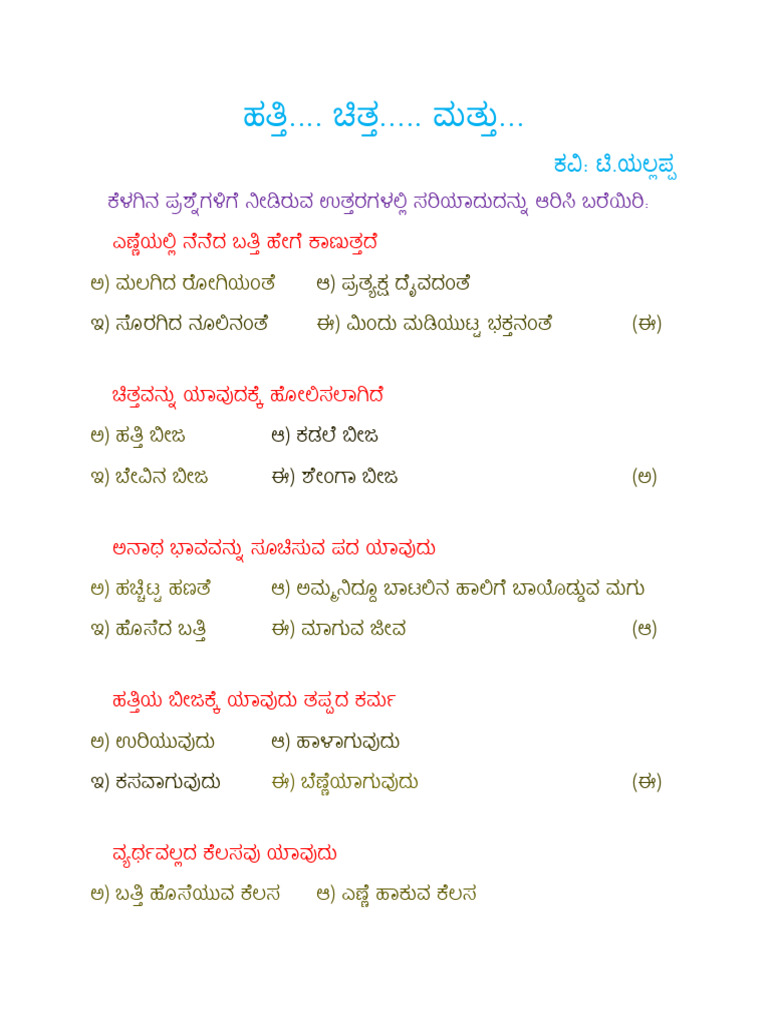 ಹತ್ತಿ.... ಚಿತ್ತ..... ಮತ್ತು...
ಕವಿ: ಟಿ.ಯಲ್ಲಪ್ಪ
ಕೆಳಗಿನ ಪ್ರಶ್ನೆಗಳಿಗೆ ನೀಡಿರುವ ಉತ್ತರಗಳಲ್ಲಿ ಸರಿಯಾದುದನ್ನು ಆರಿಸಿ ಬರೆಯಿರಿ:
ಎಣ್ಣೆಯಲ್ಲಿ ನೆನೆದ ಬತ್ತಿ ಹೇಗೆ ಕಾಣುತ್ತದೆ
ಅ) ಮಲಗಿದ ರೋಗಿಯಂತೆ ಆ) ಪ್ರತ್ಯಕ್ಷ ದೈವದಂತೆ
ಇ) ಸೊರಗಿದ ನೂಲಿನಂತೆ ಈ) ಮಿಂದು ಮಡಿಯುಟ್ಟ ಭಕ್ತನಂತೆ (ಈ)
ಚಿತ್ತವನ್ನು ಯಾವುದಕ್ಕೆ ಹೋಲಿಸಲಾಗಿದೆ
ಅ) ಹತ್ತಿ ಬೀಜ ಆ) ಕಡಲೆ ಬೀಜ
ಇ) ಬೇವಿನ ಬೀಜ ಈ) ಶೇಂಗಾ ಬೀಜ (ಅ)
ಅನಾಥ ಭಾವವನ್ನು ಸೂಚಿಸುವ ಪದ ಯಾವುದು
ಅ) ಹಚ್ಚಿಟ್ಟ ಹಣತೆ ಆ) ಅಮ್ಮನಿದ್ದೂ ಬಾಟಲಿನ ಹಾಲಿಗೆ ಬಾಯೊಡ್ಡುವ ಮಗು
ಇ) ಹೊಸೆದ ಬತ್ತಿ ಈ) ಮಾಗುವ ಜೀವ (ಆ)
ಹತ್ತಿಯ ಬೀಜಕ್ಕೆ ಯಾವುದು ತಪ್ಪದ ಕರ್ಮ
ಅ) ಉರಿಯುವುದು ಆ) ಹಾಳಾಗುವುದು
ಇ) ಕಸವಾಗುವುದು ಈ) ಬೆಣ್ಣೆಯಾಗುವುದು (ಈ)
ವ್ಯರ್ಥವಲ್ಲದ ಕೆಲಸವು ಯಾವುದು
ಅ) ಬತ್ತಿ ಹೊಸೆಯುವ ಕೆಲಸ ಆ) ಎಣ್ಣೆ ಹಾಕುವ ಕೆಲಸ